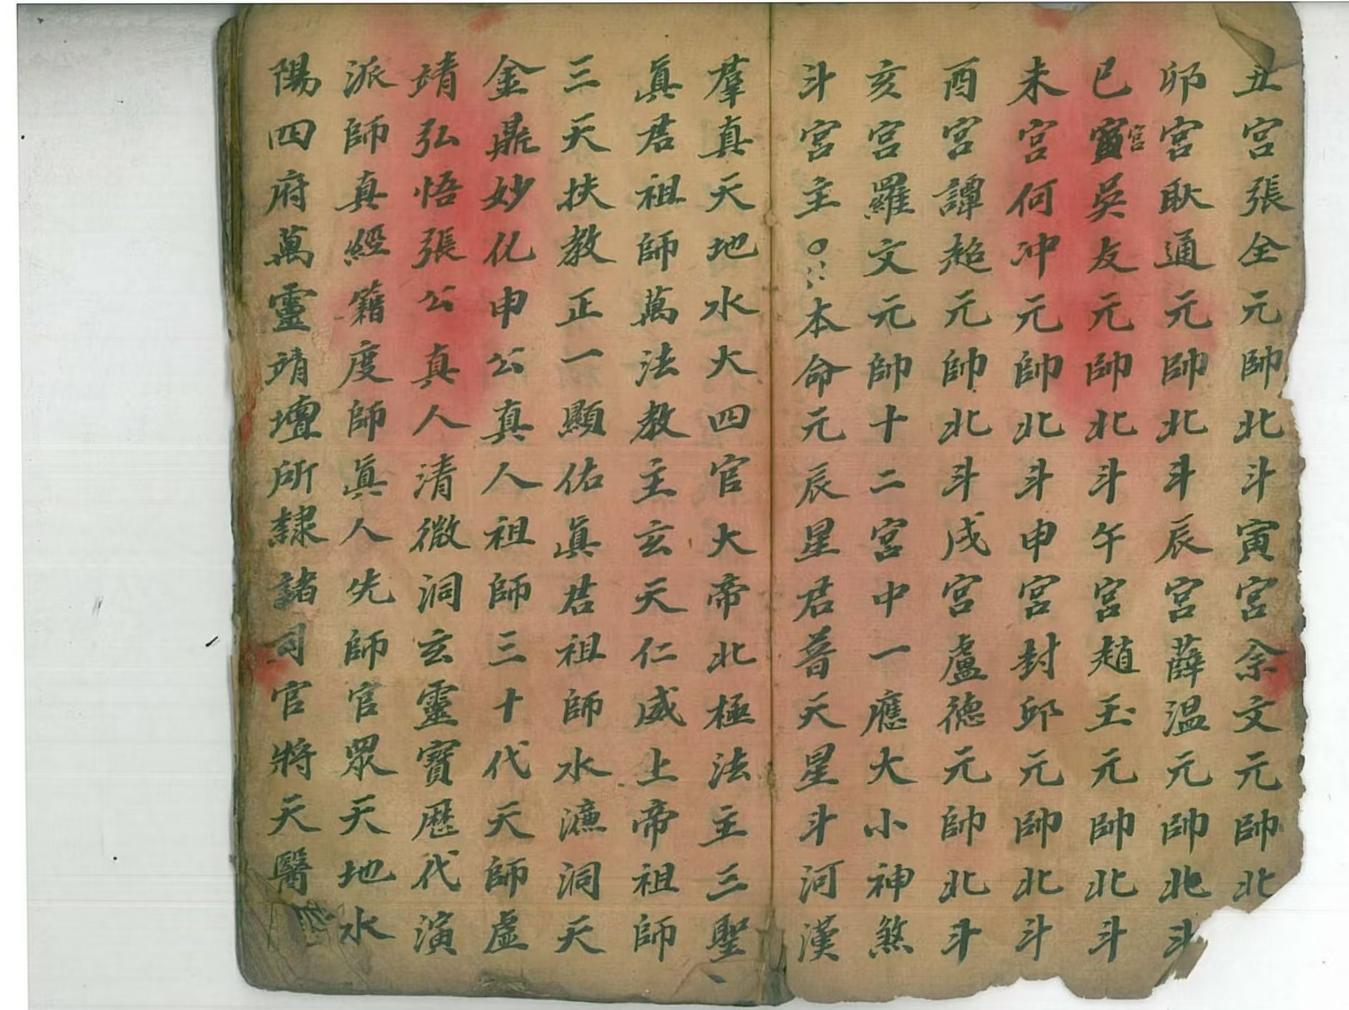 丑宮張全元帥北斗寅宮余文元帥北
卯宮耿通元帥北斗辰宮薛溫元帥北斗
巳宮吳友元帥北斗午宮趙玉元帥北斗
未宮何冲元帥北斗申宮封邱元帥北斗
酉宮譚超元帥北斗戌宮盧德元帥北斗
亥宮羅文元帥十二宮中一應大小神煞
斗宮主本命元辰星君普天星斗河漢
羣真天地水大四官大帝北極法主三聖
真君祖師萬法教主玄天仁威上帝祖師
三天扶教正一顯佑真君祖師水濂洞天
金鼎妙化申公真人祖師三十代天師虛
靖弘悟張公真人清微洞玄靈寶歷代演
派師真經籍度師真人先師官眾天地水
陽四府萬靈靖壇所隸諸司官將天醫